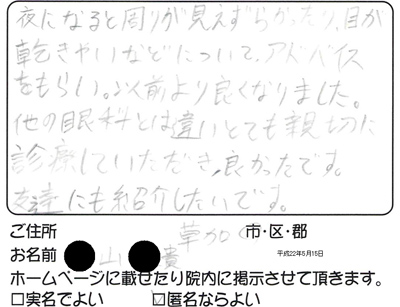 夜になると周りが見えずらかったり、目が
乾きやすいなどについて、アドバイス
をもらい。以前より良くなりました。
他の眼科とは違いとても親切に
診療していただき、良かったです。
友達にも紹介したいです。
ご住所 草加 市・区・郡
お名前 山 貴 平成22年5月15日
ホームページに載せたり院内に掲示させて頂きます。
□実名でよい ☑匿名ならよい